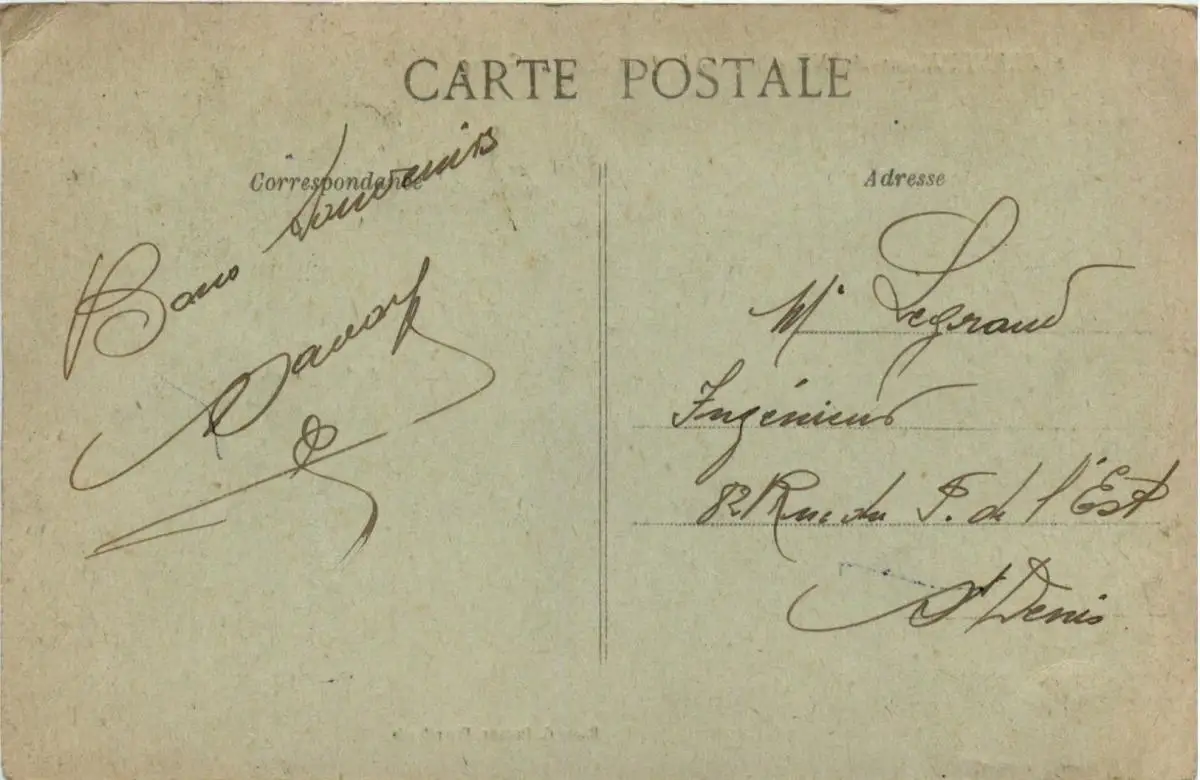 CARTE POSTALE
Correspondance
Bons Souvenirs
Adresse
Mr Legrand
Ingénieur
82 Rue du F. de l'Est
St Denis